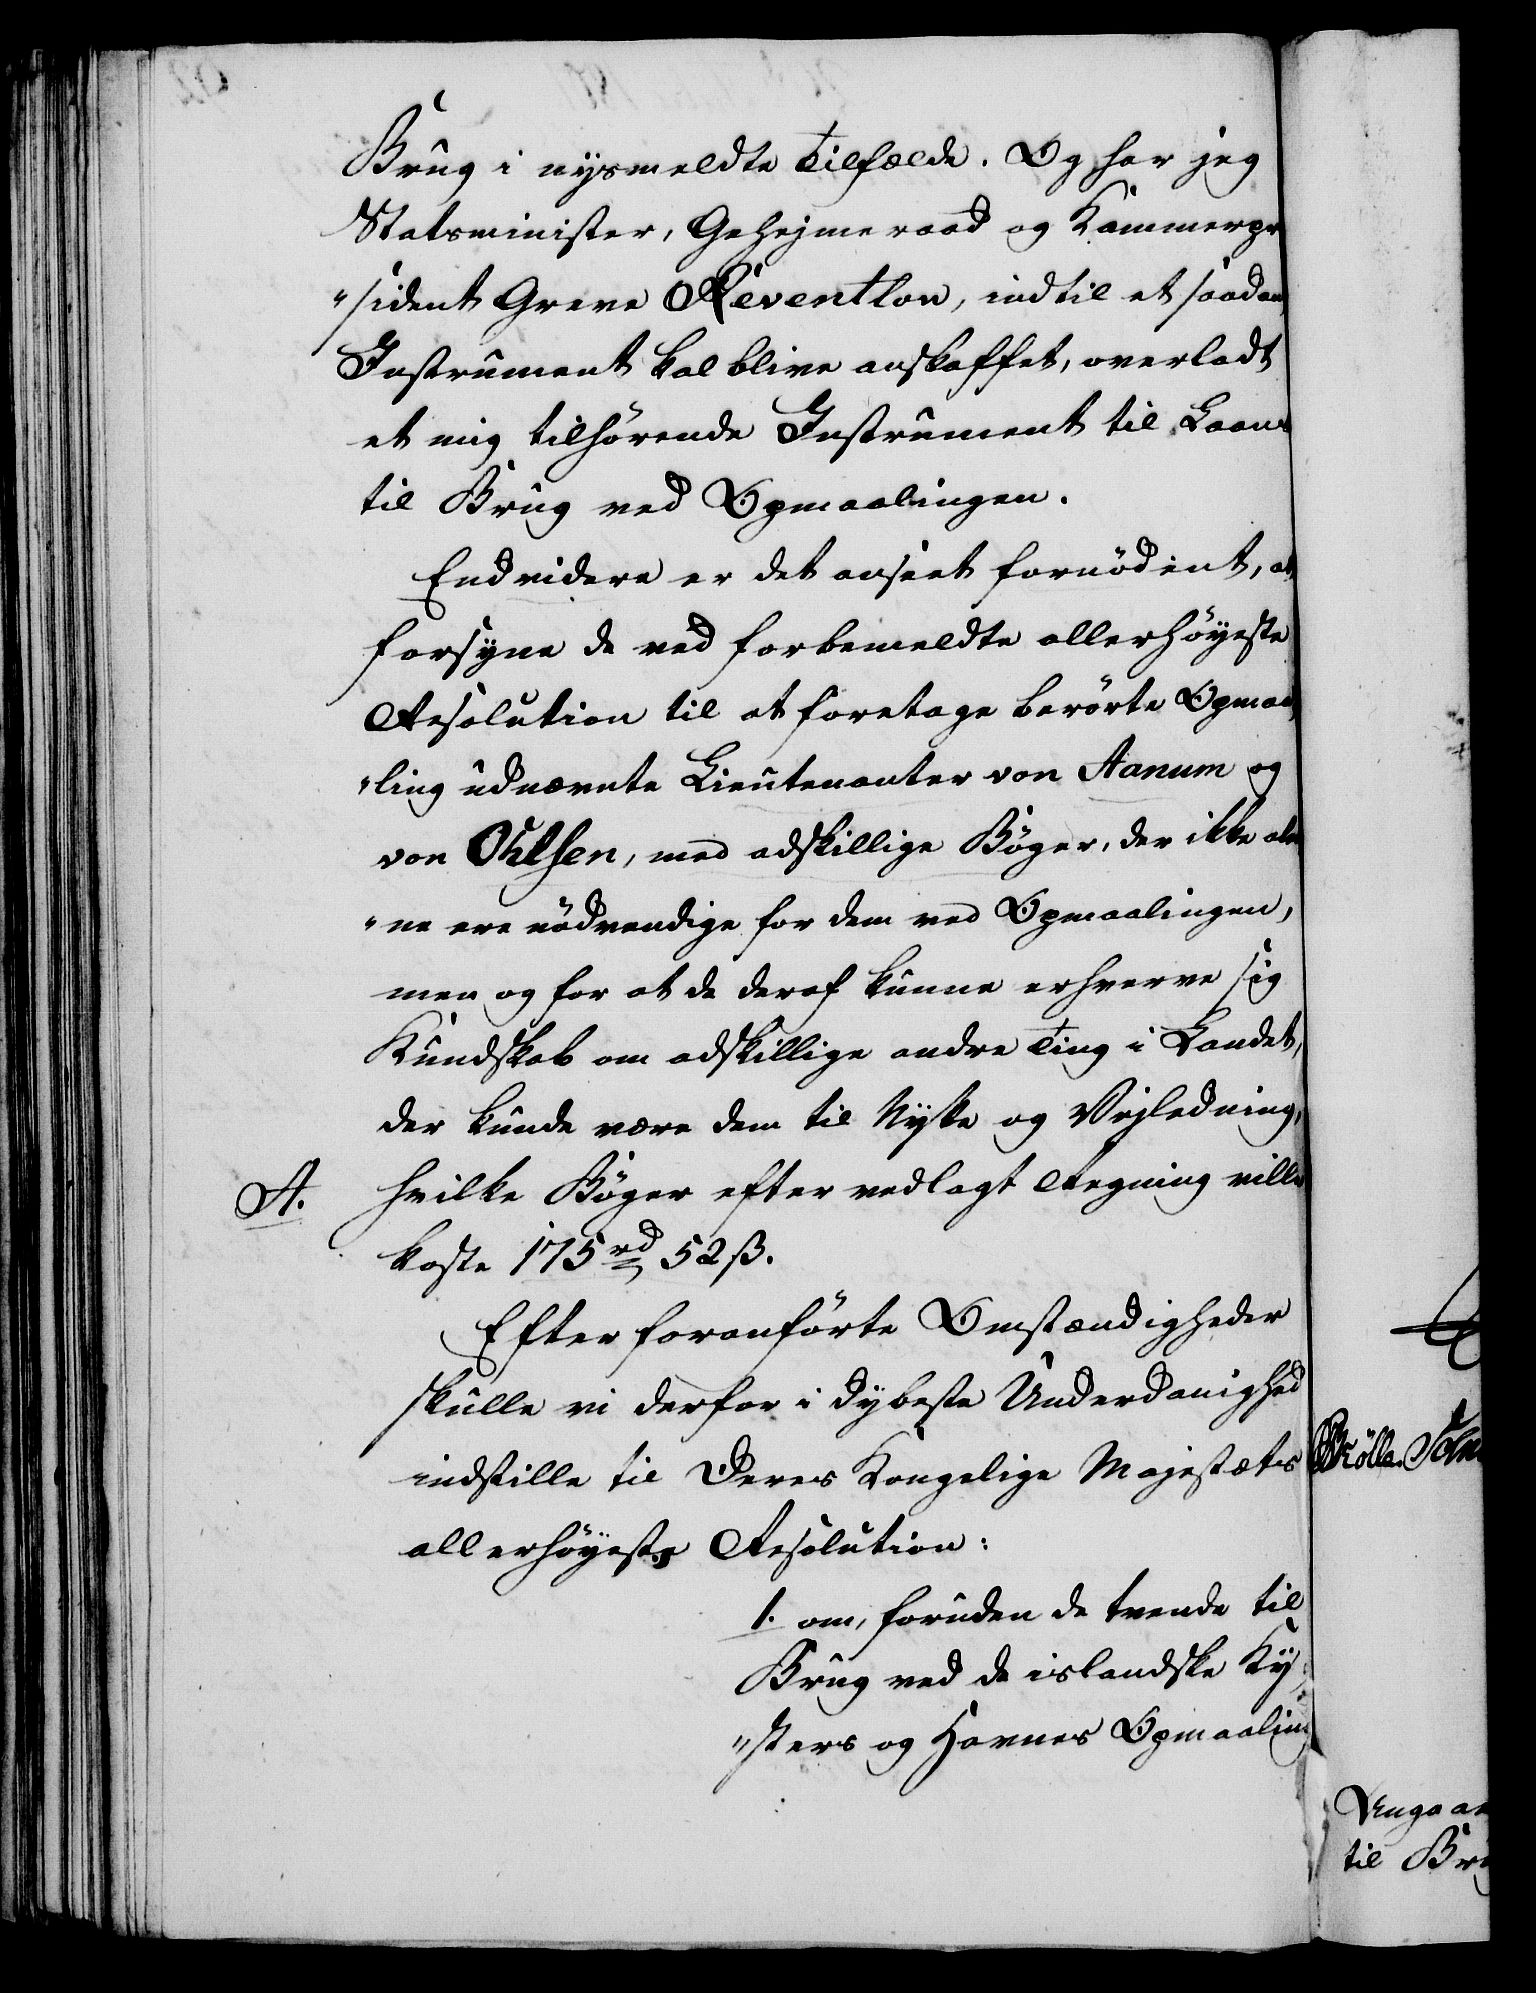 Brug i nysmeldte Tilfælde. Og har jeg
Statsminister, Gehejmeraad og Kammerpr
"sident Greve Reventlow, indtil et saadan
Instrument kal blive anskaffet, overladt
et mig tilhörende Instrument til Laans
til Brug ved Opmaalingen.
Endvidere er det anseet fornödent, at
forsyne de ved forbemeldte allerhöyeste
Resolution til at foretage berörte Opmaa
"ling udnævnte Lieutenanter von Aanum og
von Ohlsen, med adskillige Böger, der ikke ale
"ne ere nödvendige for dem ved Opmaalingen,
men og for at de deraf kunne erhverve sig
Kundskab om adskillige andre Ting i Landet,
der kunde være dem til Nytte og Vejledning,
A. hvilke Böger efter vedlagt Regning ville
koste 175 rd 52 ß.
Efter foranförte Omstændigheder
skulle vi derfor i dybeste Underdanighed
indstille til Deres Kongelige Majestæts
allerhöyeste Resolution:
1. om, foruden de tvende til
Brug ved de islandske Ky
"sters og Havnes Opmaaling
til Bru